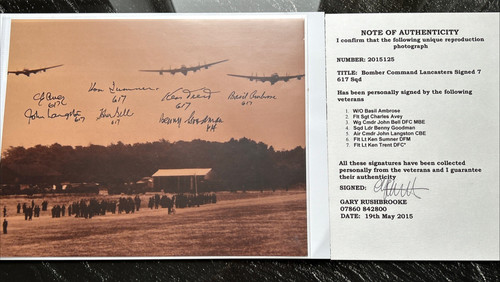 C Avey
617
Ken Sumner
617
Ken Trent
617
Basil Ambrose
617
John Langston
617
John Bell
617
Benny Goodman
617
NOTE OF AUTHENTICITY
I confirm that the following unique reproduction
photograph
NUMBER: 2015125
TITLE: Bomber Command Lancasters Signed 7
617 Sqd
Has been personally signed by the following
veterans
1. W/O Basil Ambrose
2. Flt Sgt Charles Avey
3. Wg Cmdr John Bell DFC MBE
4. Sqd Ldr Benny Goodman
5. Air Cmdr John Langston CBE
6. Flt Lt Ken Sumner DFM
7. Flt Lt Ken Trent DFC*
All these signatures have been collected
personally from the veterans and I guarantee
their authenticity
SIGNED:
GARY RUSHBROOKE
07860 842800
DATE: 19th May 2015